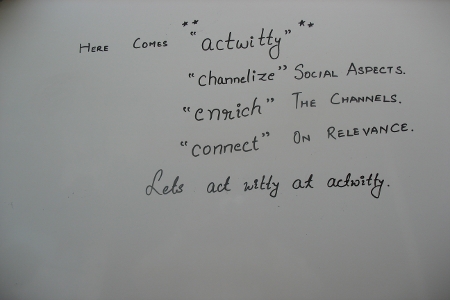 HERE COMES ** "actwitty" **
"channelize" SOCIAL ASPECTS.
"enrich" THE CHANNELS.
"connect" ON RELEVANCE.
Lets act witty at actwitty.